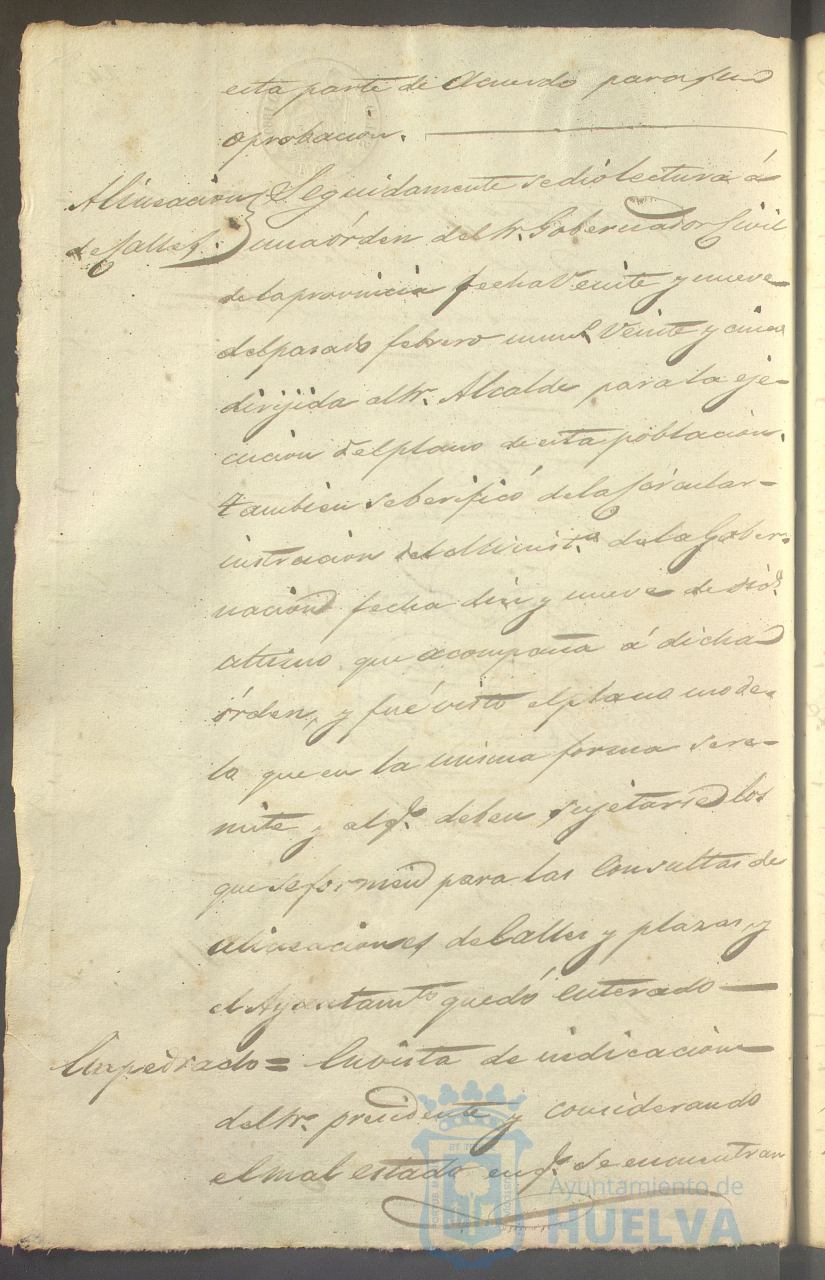 esta parte de Acuerdo para su
aprobacion.
Alineacion
de Calles.
Seguidamente se dio lectura á
una órden del Sr. Gobernador Civil
de la provincia fecha Veinte y nueve
del pasado febrero num.º Veinte y cinco
dirijida al Sr. Alcalde para la eje-
cucion del plano de esta poblacion.
tambien se berificó de la Circular-
instruccion del Minist.º de la Gober-
nacion fecha diez y nueve de
ultimo que acompaña á dicha
órden, y fué visto el plano mode-
lo que en la misma forma se re-
mite y al q.e deben sujetarse los
que se formen para las Consultas de
alineaciones de Calles y plazas, y
el Ayuntam.to quedó enterado
Empedrado = En vista de indicacion
del Sr. presidente y considerando
el mal estado en q.e se encuentran
Ayuntamiento de
HUELVA